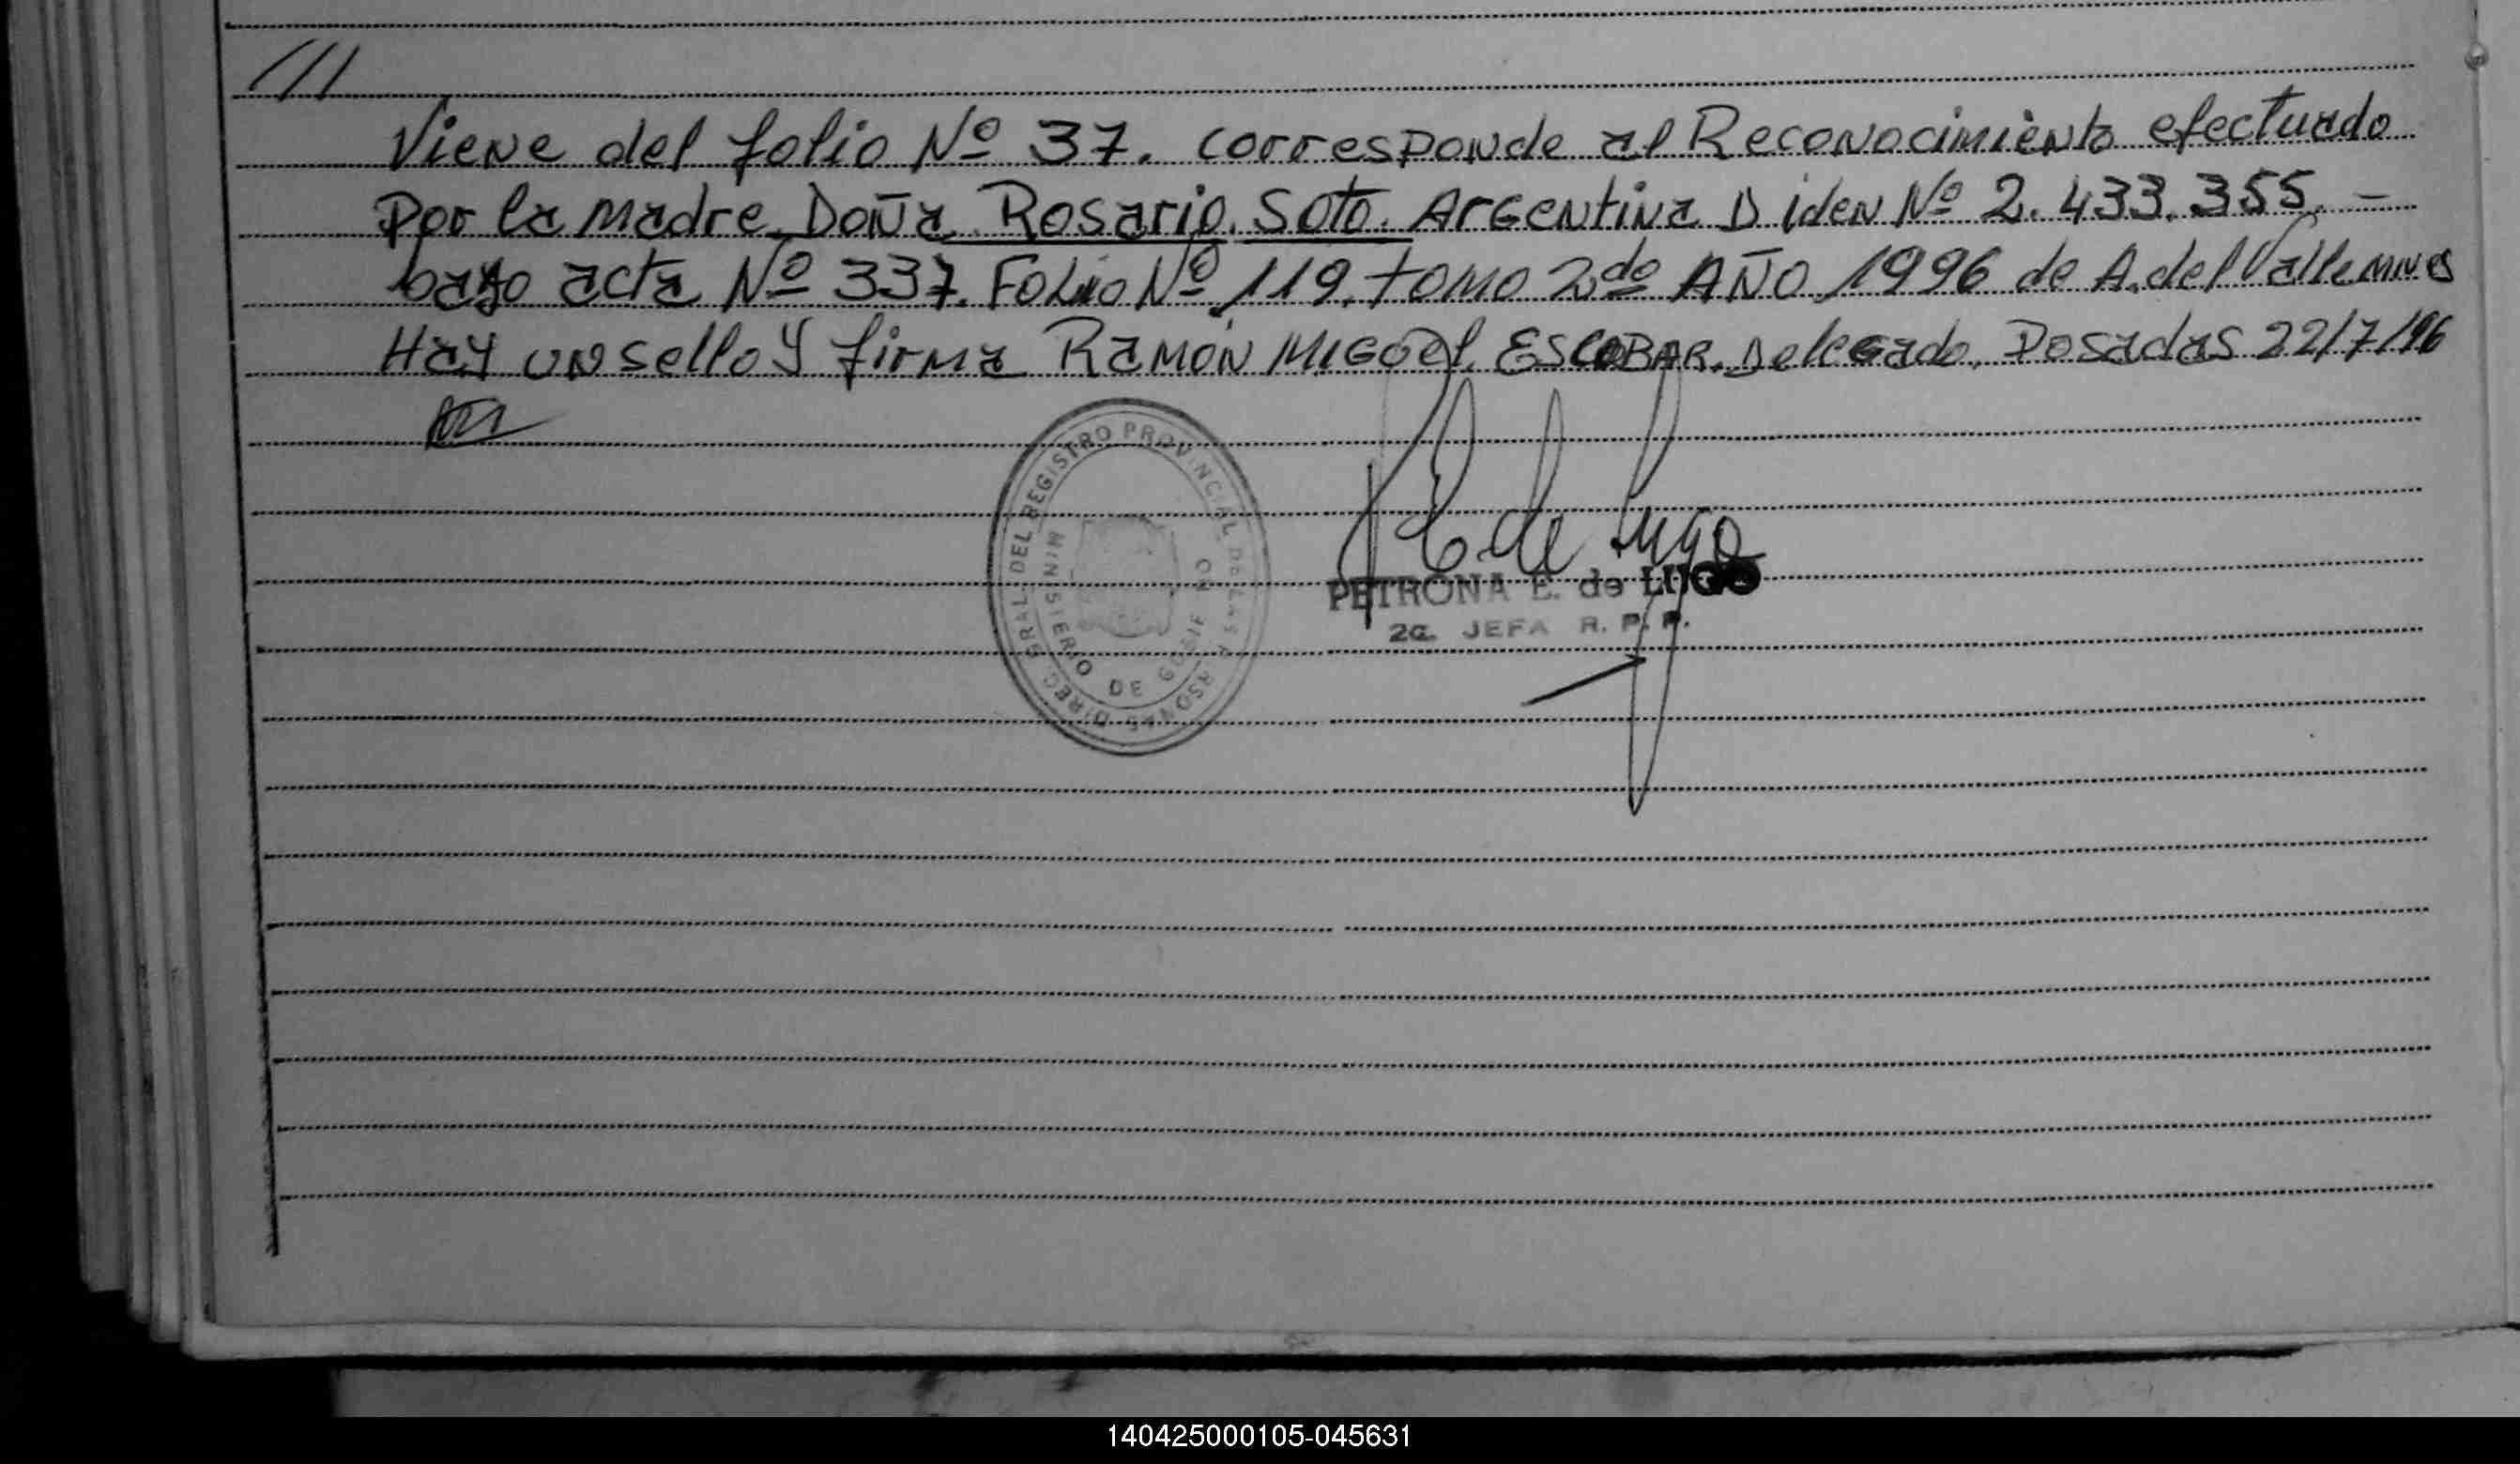 ///
Viene del folio Nº 37. corresponde al Reconocimiento efectuado
por la madre Doña Rosario Soto. Argentina D iden Nº 2.433.355. -
bajo acta Nº 337. Folio Nº 119. tomo 2do AÑO 1996 de A. del Valle Mnes
Hay un sello y firma Ramón Miguel ESCOBAR. Delegado. Posadas 22/7/96
DIREC. GRAL. DEL REGISTRO PROVINCIAL DE LAS PERSONAS
MINISTERIO DE GOBIERNO
E. de Lugo
PETRONA E. de LUGO
2a. JEFA R. P. P.
140425000105-045631